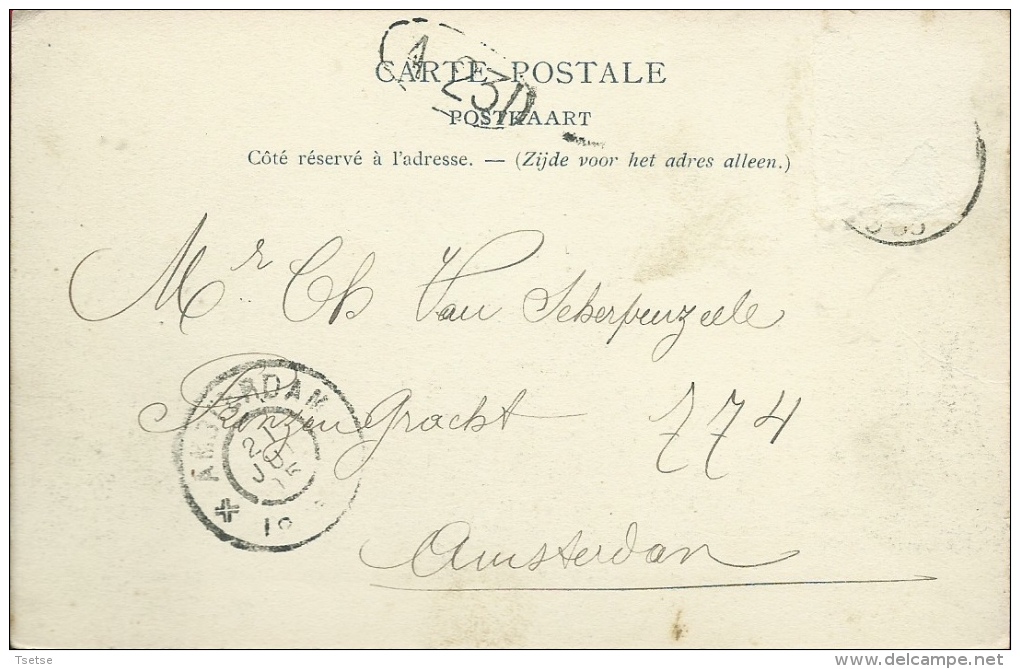 A 23D
CARTE POSTALE
POSTKAART
Côté réservé à l'adresse. — (Zijde voor het adres alleen.)
Mr Ch Van Scherpenzeele
Prinzen Gracht 774
Amsterdam
AMSTERDAM
Tsetse
delcampe.net